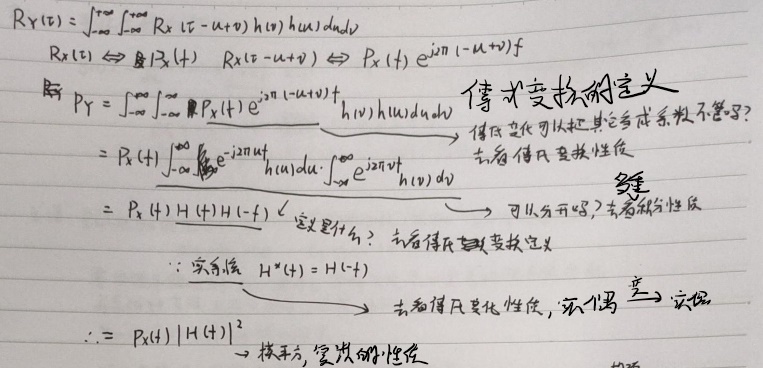 R_Y(τ) = ∫_{-∞}^{+∞} ∫_{-∞}^{+∞} R_X(τ-u+v) h(v) h(u) du dv
R_X(τ) ⇔ P_X(f)  R_X(τ-u+v) ⇔ P_X(f) e^{j2π(-u+v)f}
P_Y = ∫_{-∞}^{+∞} ∫_{-∞}^{+∞} P_X(f) e^{j2π(-u+v)f} h(v) h(u) du dv
傅式变换的定义
→ 傅氏变化可以把其它当成系数不管吗?
去看傅氏变换性质
= P_X(f) ∫_{-∞}^{+∞} e^{-j2πuf} h(u) du · ∫_{-∞}^{+∞} e^{j2πvf} h(v) dv
→ 可以分开吗? 去看多重积分性质
= P_X(f) H(f) H(-f) ↙ 定义是什么? 去看傅氏变换定义
∵ 实系统 H*(f) = H(-f)
→ 去看傅氏变化性质, 实偶 变→ 实偶
∴ = P_X(f) |H(f)|²
→ 模平方, 复数的性质